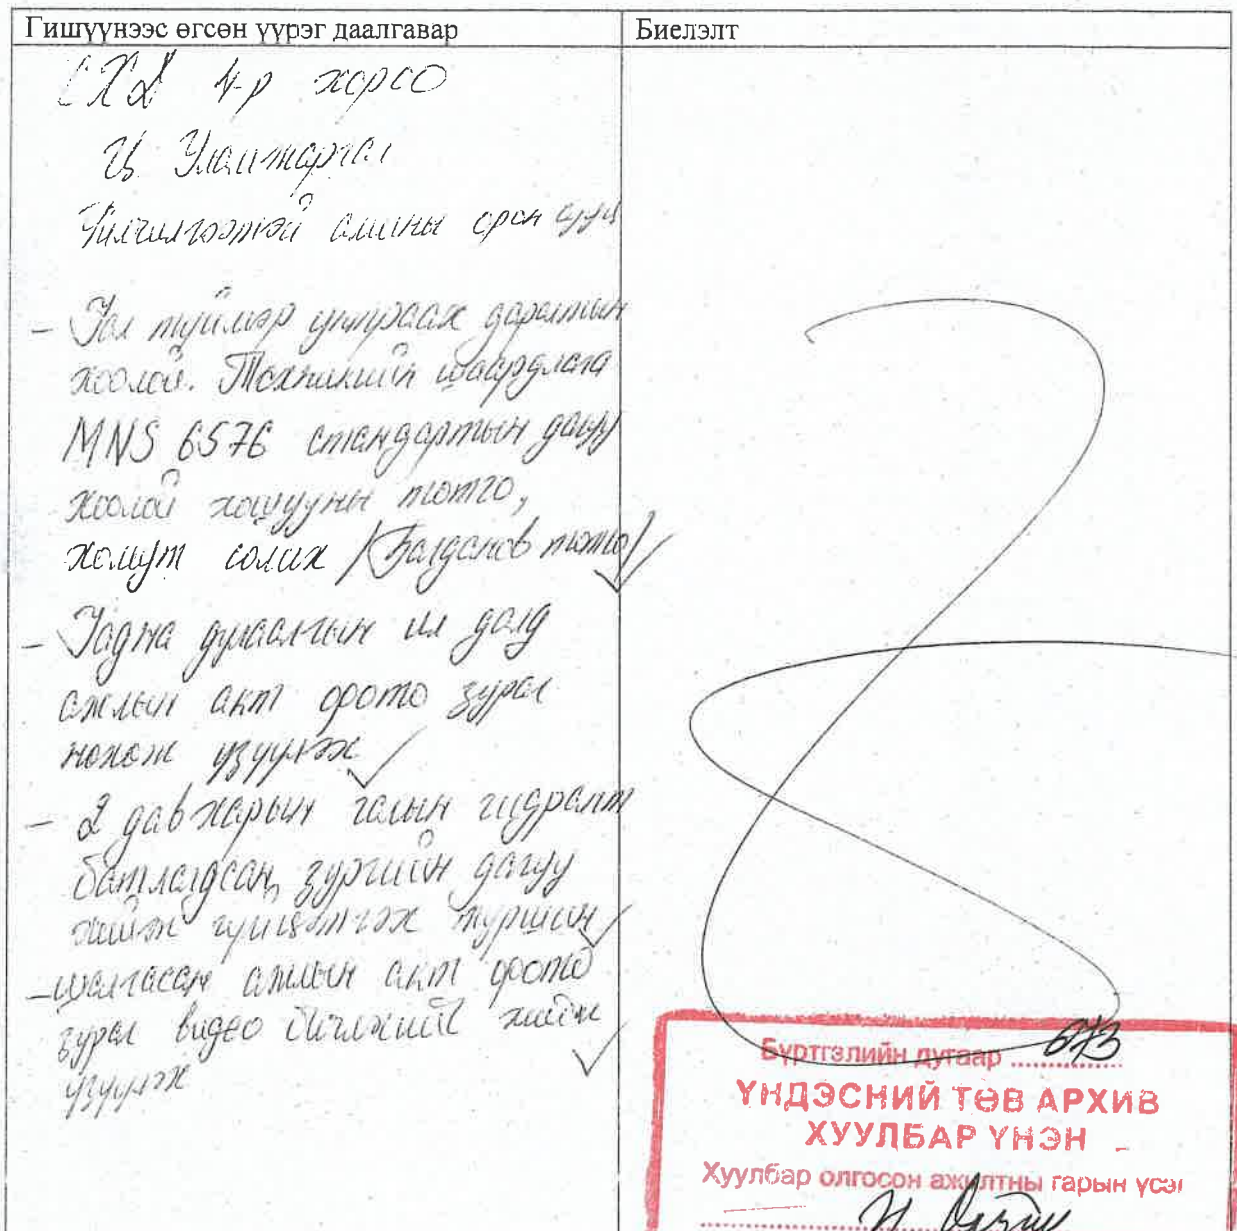 Гишүүнээс өгсөн үүрэг даалгавар
Биелэлт
СХД 4-р хороо
Ц Уламжаргал
Үйлчилгээтэй амины орон сууц
- Гал түймэр унтраах даралтын
хоолой. Техникийн шаардлага
MNS 6576 стандартын дагуу
хоолой хошууны тотго,
хомут солих /Балданов тотго/
- Гадна дулаалгын ил далд
ажлын акт фото зураг
нөхөж үзүүлэх
- 2 давхарын галын гидрант
батлагдсан зургийн дагуу
хийж гүйцэтгэх туршсан
- шалгасан ажлын акт фото
зураг видео бичлэгийг хийж
үзүүлэх
Бүртгэлийн дугаар ........ 673
ҮНДЭСНИЙ ТӨВ АРХИВ
ХУУЛБАР ҮНЭН
Хуулбар олгосон ажилтны гарын үсэг